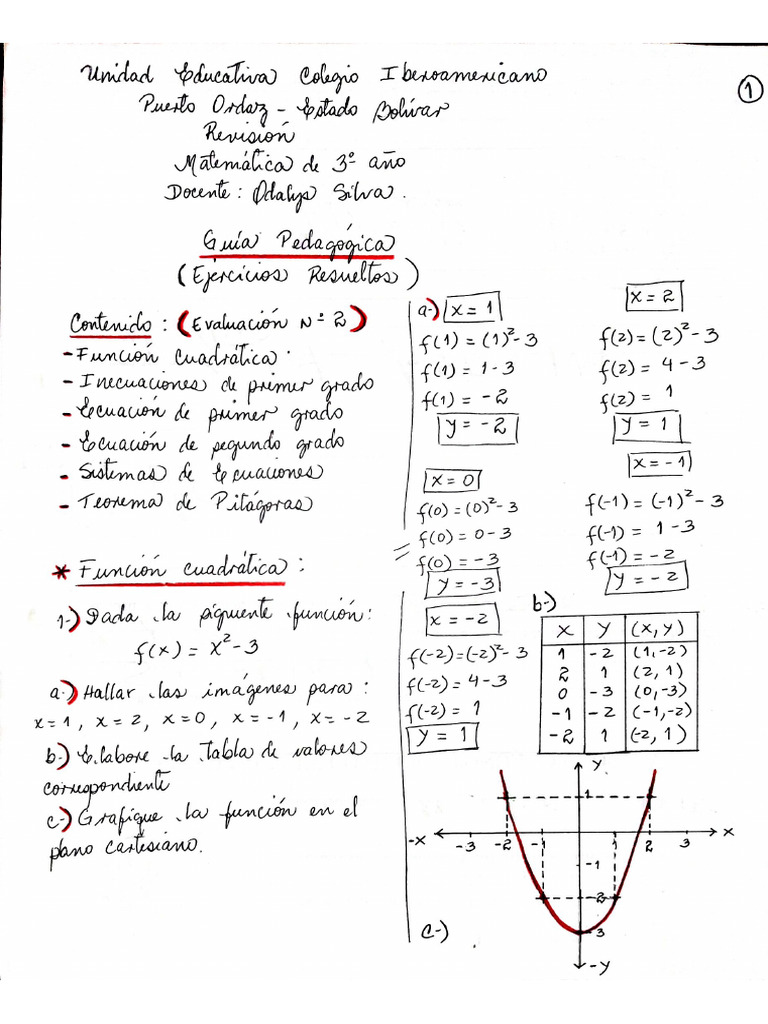 Unidad Educativa Colegio Iberoamericano
Puerto Ordaz - Estado Bolívar
Revisión
Matemática de 3º año
Docente: Odalys Silva.
1
Guía Pedagógica
(Ejercicios Resueltos)
Contenido: (Evaluación Nº 2)
- Función Cuadrática.
- Inecuaciones de primer grado
- Ecuación de primer grado
- Ecuación de segundo grado
- Sistemas de Ecuaciones
- Teorema de Pitágoras
* Función cuadrática:
1-) Dada la siguiente función:
f(x) = x²-3
a-) Hallar las imágenes para:
x=1, x=2, x=0, x=-1, x=-2
b-) Elabore la tabla de valores
correspondiente
c-) Grafique la función en el
plano cartesiano.
a-) x=1
f(1)=(1)²-3
f(1)=1-3
f(1)=-2
y=-2
x=2
f(2)=(2)²-3
f(2)=4-3
f(2)=1
y=1
x=0
f(0)=(0)²-3
f(0)=0-3
f(0)=-3
y=-3
x=-1
f(-1)=(-1)²-3
f(-1)=1-3
f(-1)=-2
y=-2
x=-2
f(-2)=(-2)²-3
f(-2)=4-3
f(-2)=1
y=1
b-)
X Y (x,y)
1 -2 (1,-2)
2 1 (2,1)
0 -3 (0,-3)
-1 -2 (-1,-2)
-2 1 (-2,1)
c-)
y
1
-x -3 -2 -1 1 2 3 x
-1
-2
-3
-y